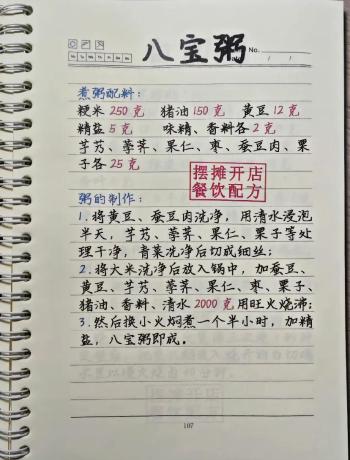 八宝粥
No.
煮粥配料：
粳米250克 猪油150克 黄豆12克
精盐5克 味精、香料各2克
芋艿、荸荠、果仁、枣、蚕豆肉、栗
子各25克
摆摊开店
餐饮配方
粥的制作：
1.将黄豆、蚕豆肉洗净，用清水浸泡
半天，芋艿、荸荠、果仁、栗子等处
理干净，青菜洗净后切成细丝；
2.将大米洗净后放入锅中，加蚕豆、
黄豆、芋艿、荸荠、果仁、枣、栗子、
猪油、香料、清水2000克用旺火烧沸；
3.然后换小火焖煮一个半小时，加精
盐，八宝粥即成。
107